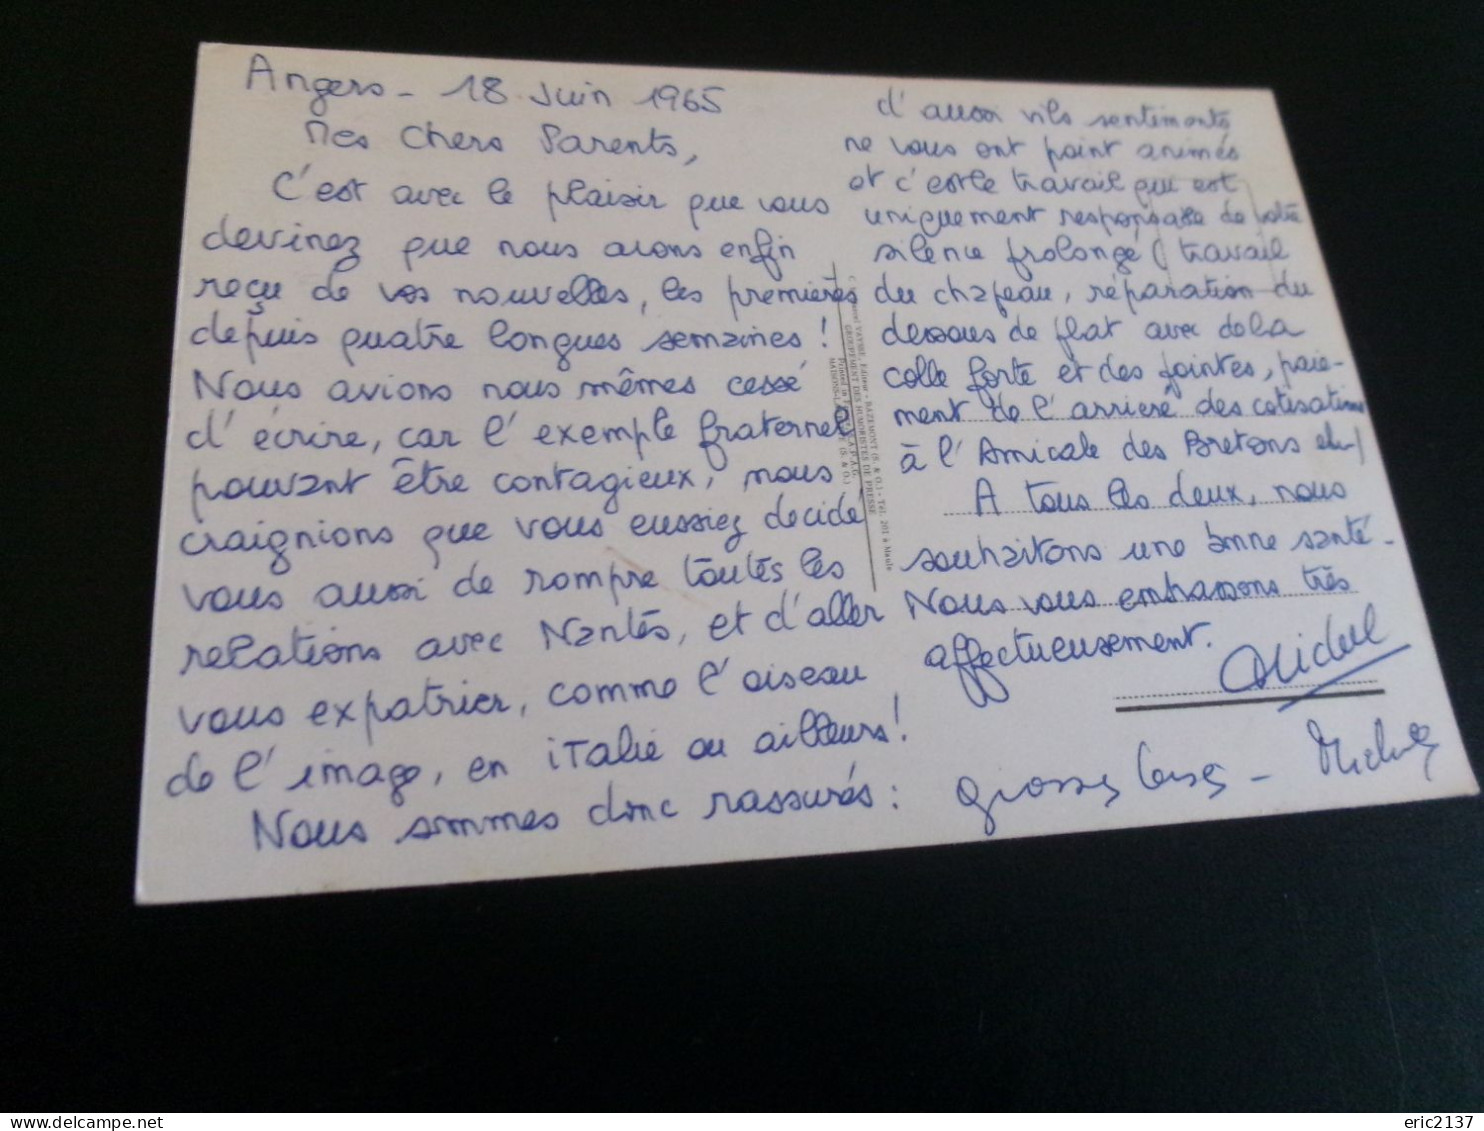 Angers - 18 Juin 1965
Mes Chers Parents,
C'est avec le plaisir que vous
devinez que nous avons enfin
reçu de vos nouvelles, les premières
depuis quatre longues semaines !
Nous avions nous mêmes cessé
d'écrire, car l'exemple fraternel
pouvant être contagieux, nous
craignions que vous eussiez décidé
vous aussi de rompre toutes les
relations avec Nantes, et d'aller
vous expatrier, comme l'oiseau
de l'image, en italie ou ailleurs !
Nous sommes donc rassurés :
d'aussi vils sentiments
ne vous ont point animés
et c'est le travail qui est
uniquement responsable de votre
silence prolongé (travail
du chapeau, réparation du
dessous de plat avec de la
colle forte et des pointes, paie-
ment de l'arriéré des cotisations
à l'Amicale des Bretons etc)
A tous les deux, nous
souhaitons une bonne santé -
Nous vous embrassons très
affectueusement.
Michel
grosses bises -
VAYSSE, Editeur - BAZEMONT (S. & O.) - Tél. 201 à Maule
GROUPEMENT DES HUMORISTES DE PRESSE
Printed in
MAISONS-L (S. & O.)
eric2137